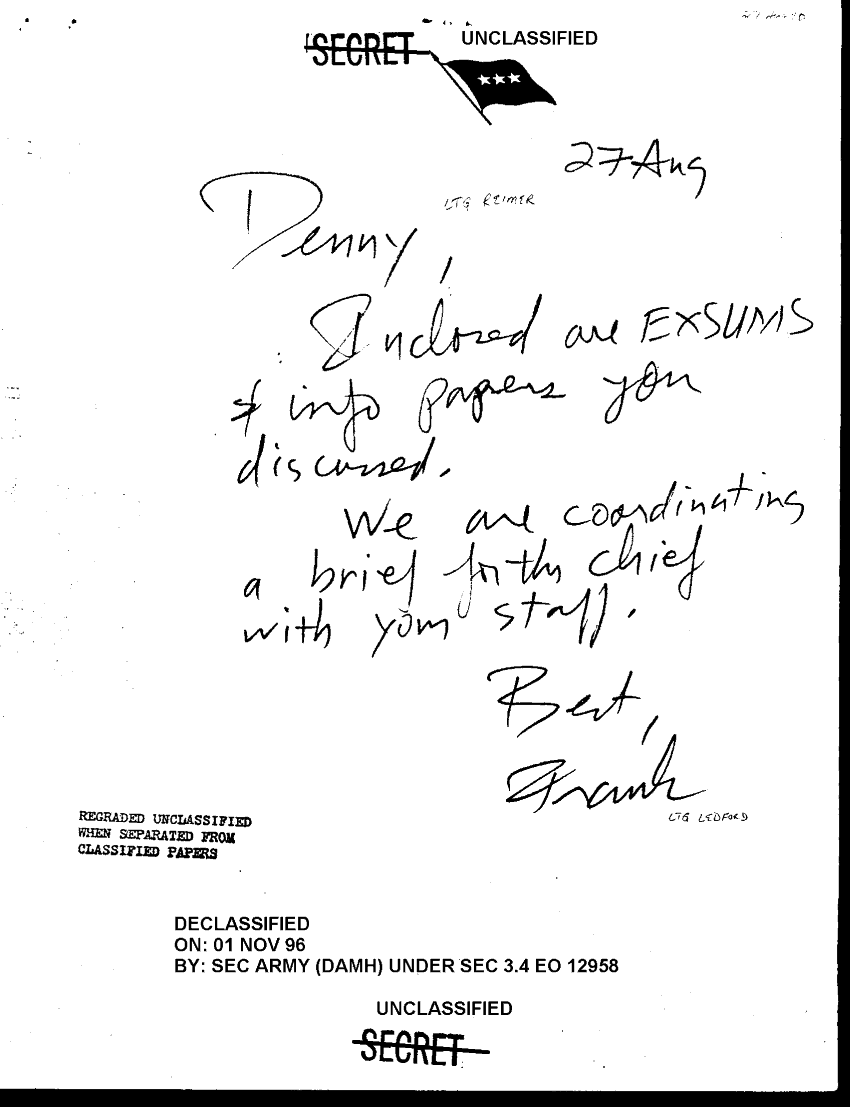 SECRET UNCLASSIFIED
27 Aug
LTG REIMER
Denny,
Inclosed are EXSUMS
& info papers you
discussed.
We are coordinating
a brief for the chief
with your staff.
Best,
Frank
LTG LEDFORD
REGRADED UNCLASSIFIED
WHEN SEPARATED FROM
CLASSIFIED PAPERS
DECLASSIFIED
ON: 01 NOV 96
BY: SEC ARMY (DAMH) UNDER SEC 3.4 EO 12958
UNCLASSIFIED
SECRET